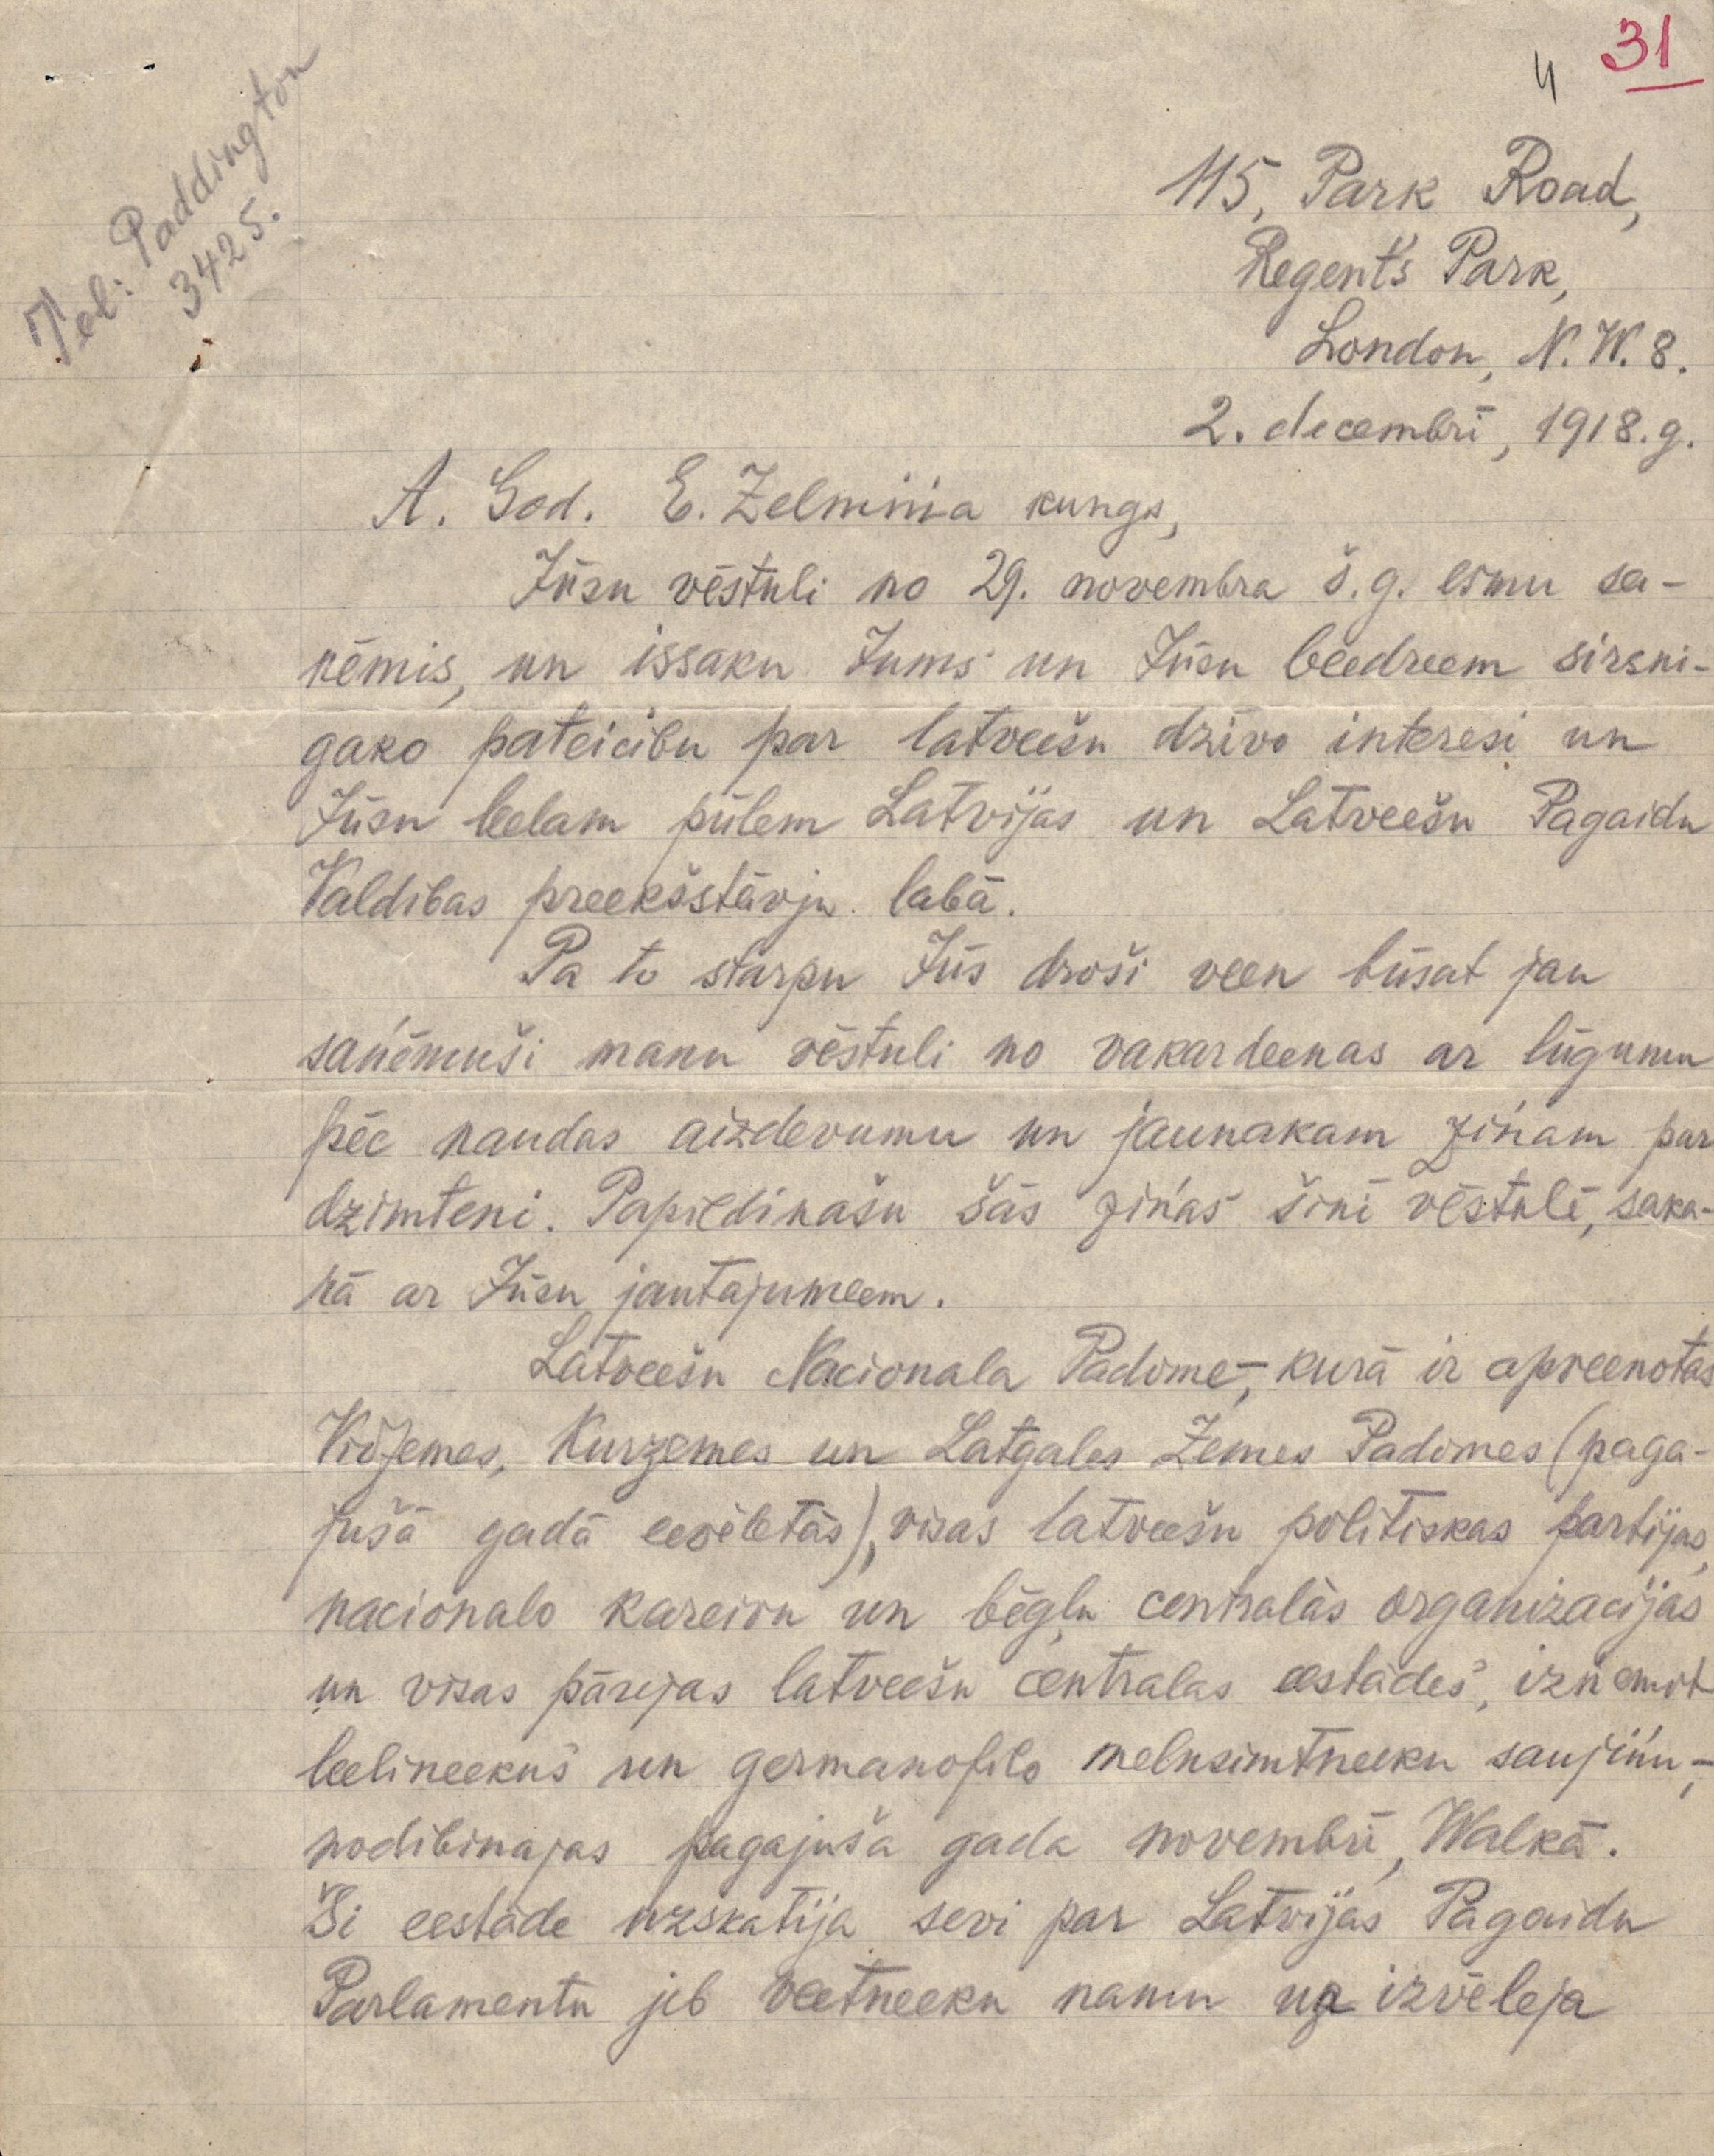 31
4
Tel: Paddington
3425.
115, Park Road,
Regent's Park,
London, N.W. 8.
2. decembrī, 1918. g.
A. God. E. Zelmiņa kungs,
Jūsu vēstuli no 29. novembra š. g. esmu sa-
ņēmis, un issaku Jums un Jūsu beedreem sirsni-
gako pateicibu par latveešu dzīvo interesi un
Jūsu leelam pūlem Latvijas un Latveešu Pagaidu
Valdibas preekšstāvju labā.
Pa to starpu Jūs droši veen būsat jau
saņēmuši manu vēstuli no vakardeenas ar lūgumu
pēc naudas aizdevumu un jaunakam ziņam par
dzimteni. Papildinašu šās ziņas šinī vēstulē, saka-
rā ar Jūsu jautajumeem.
Latveešu Nacionala Padome,- kurā ir apveenotas
Vidzemes, Kurzemes un Latgales Zemes Padomes (paga-
jušā gadā eevēlētās), visas latveešu politiskas partijas,
nacionalo kareivu un bēgļu centralās organizacijas
un visas pārejas latveešu centralas eestādes, izņemot
leelineekus un germanofilo melnsimtneeku saujiņu,-
nodibinajas pagajuša gada novembrī, Walkā.
Ši eestāde uzskatija sevi par Latvijas Pagaidu
Parlamentu jeb veetneeku namu un izvēleja